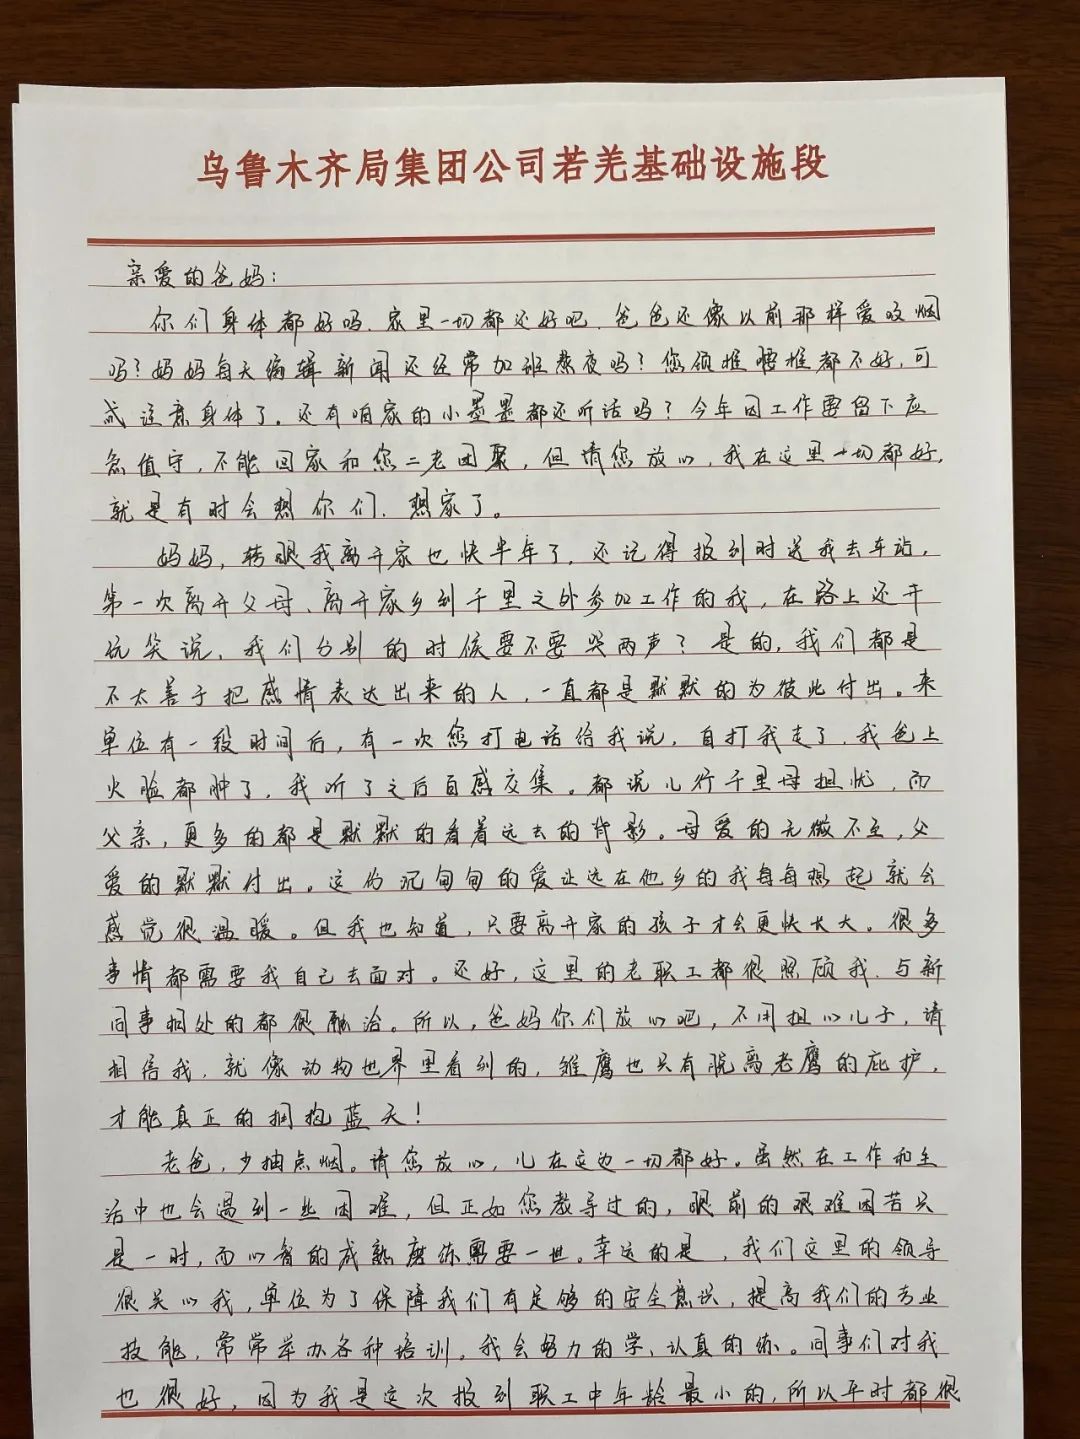 乌鲁木齐局集团公司若羌基础设施段
亲爱的爸妈：
你们身体都好吗、家里一切都还好吧、爸爸还像以前那样爱吸烟
吗？妈妈每天编辑新闻还经常加班熬夜吗？您颈椎腰椎都不好，可
式注意身体了。还有咱家的小墨墨都还听话吗？今年因工作需留下应
急值守，不能回家和您二老团聚，但请您放心，我在这里一切都好，
就是有时会想你们、想家了。
妈妈，转眼我离开家也快半年了，还记得报到时送我去车站，
第一次离开父母、离开家乡到千里之外参加工作的我，在路上还开
玩笑说，我们分别的时候要不要哭两声？是的，我们都是
不太善于把感情表达出来的人，一直都是默默的为彼此付出。来
单位有一段时间后，有一次您打电话给我说，自打我走了，我爸上
火脸都肿了，我听了之后百感交集。都说儿行千里母担忧，而
父亲，更多的都是默默的看着远去的背影。母爱的无微不至，父
爱的默默付出。这份沉甸甸的爱让远在他乡的我每每想起就会
感觉很温暖。但我也知道，只要离开家的孩子才会更快长大。很多
事情都需要我自己去面对。还好，这里的老职工都很照顾我，与新
同事相处的都很融洽。所以，爸妈你们放心吧，不用担心儿子，请
相信我，就像动物世界里看到的，雏鹰也只有脱离老鹰的庇护，
才能真正的拥抱蓝天！
老爸，少抽点烟。请您放心，儿在这边一切都好。虽然在工作和生
活中也会遇到一些困难，但正如您教导过的，眼前的艰难困苦只
是一时，而心智的成熟磨练需要一世。幸运的是，我们这里的领导
很关心我，单位为了保障我们有足够的安全意识，提高我们的专业
技能，常常举办各种培训。我会努力的学、认真的练。同事们对我
也很好，因为我是这次报到职工中年龄最小的，所以平时都很